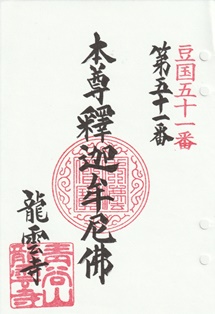 豆国五十一番
第五十一番
本尊釋迦牟尼佛
龍雲寺
青谷山
龍雲寺